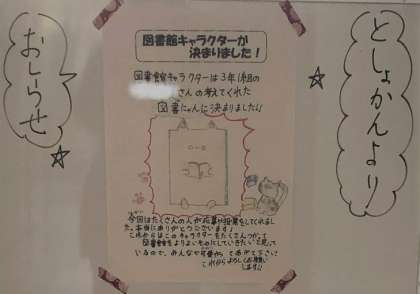 としょかんより!
おしらせ
図書館キャラクターが
決まりました!
図書館キャラクターは3年1組の
さんの考えてくれた
図書にゃんに決まりました!!
今回はたくさんの人が応募や投票をしてくれまし
た。本当にありがとうございます!
これからはこのキャラクターをたくさんつかって
図書館をよりよいものにしていきたいと思って
いるので、みんなも可愛がってあげて下さい!
これからよろしくお願い
します!!